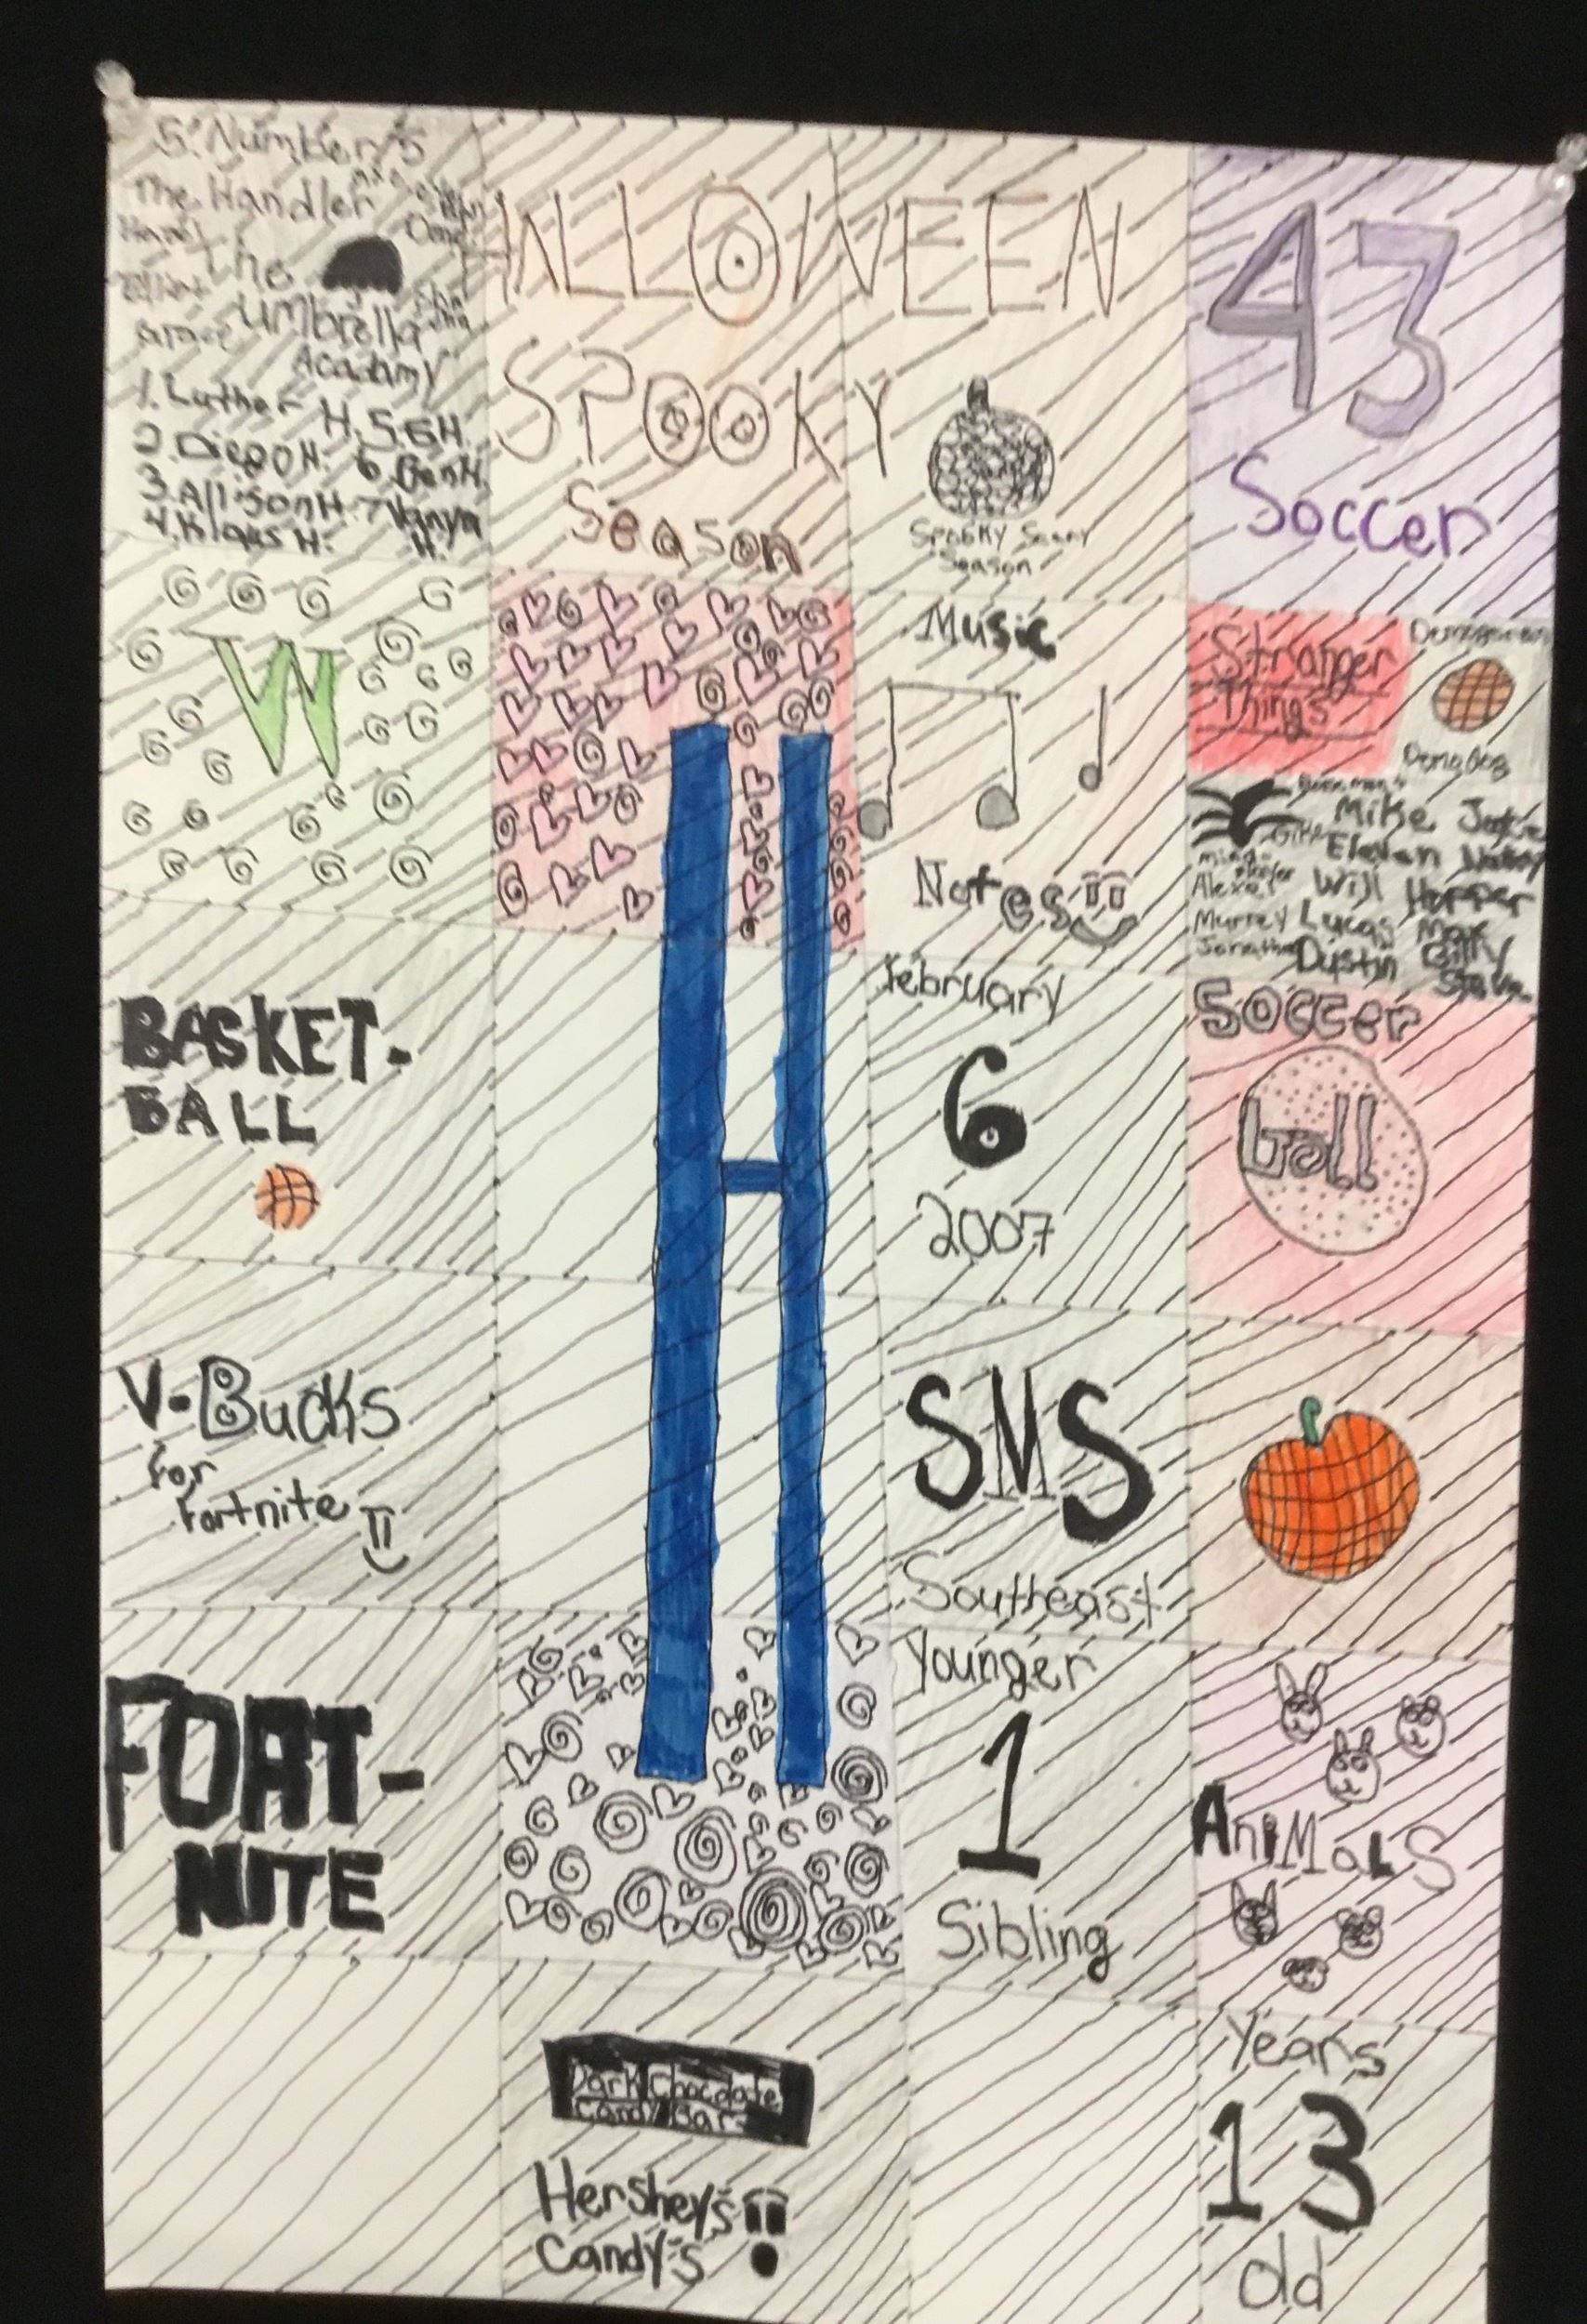 5. Number 5
The Handler
Hazel
The
Umbrella
Acadamy
1. Luther H. 5. 5 H.
2. Diego H. 6. Ben H.
3. Allison H. 7 Vanya
4. Klaus H. H.
HALLOWEEN
SPOOKY
Season
Spooky Scary
Season
43
Soccer
W
Music
Notes
Stranger
Things
Demogorgon
Demodog
Mike
Eleven
Will Hopper
Alexei
Murray Lucas Max
Jonathan Dustin Billy
Steve
H
BASKET-
BALL
February
6
2007
Soccer
ball
V-Bucks
for
Fortnite
SMS
Southeast
FORT-
NITE
Younger
1
Sibling
AniMaLS
Dark Chocolate
Candy Bar
Hershey's
Candy's
Years
13
old